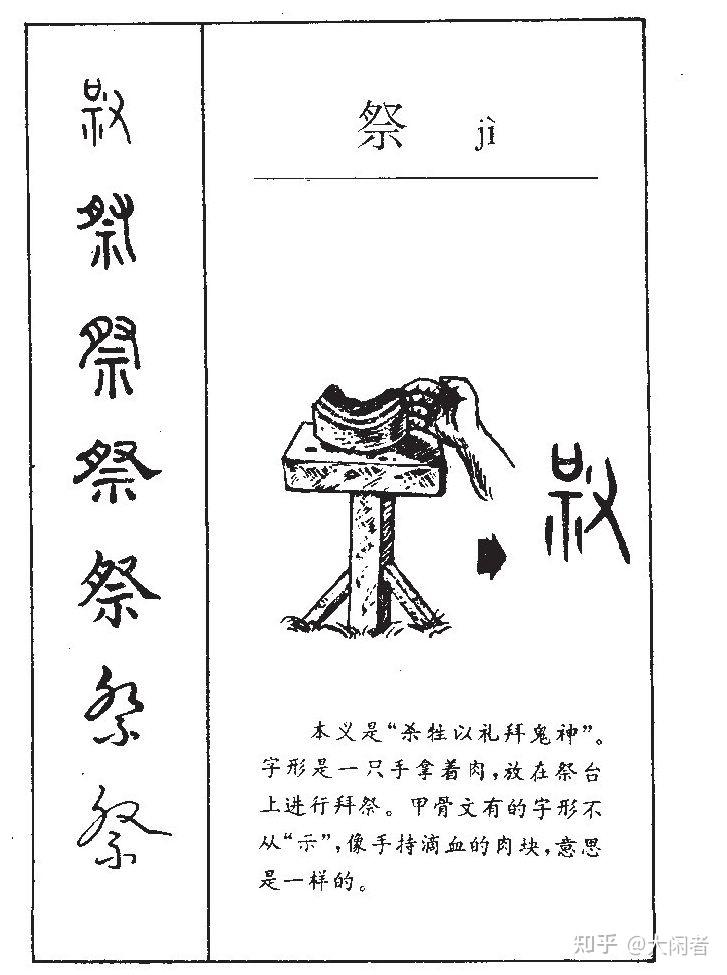 祭 jì
祭
祭
祭
祭
祭
祭
祭
本义是“杀牲以礼拜鬼神”。
字形是一只手拿着肉，放在祭台
上进行拜祭。甲骨文有的字形不
从“示”，像手持滴血的肉块，意思
是一样的。
知乎 @大闲者